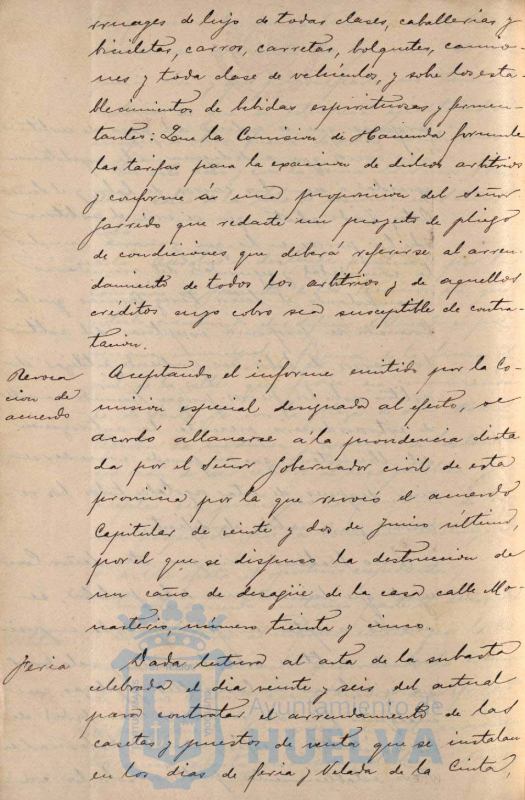 rruages de lujo de todas clases, caballerias y
bicicletas, carros, carretas, bolquetes, camio-
nes y toda clase de vehiculos, y sobre los esta-
blecimientos de bebidas espirituosas y fermen-
tantes: Que la Comision de Hacienda formule
las tarifas para la exaccion de dichos arbitrios
y conforme á una proposicion del Señor
Garrido que redacte un proyecto de pliego
de condiciones que deberá referirse al arren-
damiento de todos los arbitrios y de aquellos
créditos cuyo cobro sea susceptible de contra-
tacion.
Revoca
cion de
acuerdo
Aceptando el informe emitido por la Co-
mision especial designada al efecto, se
acordó allanarse á la providencia dicta
da por el Señor Gobernador civil de esta
provincia por la que revocó el acuerdo
Capitular de veinte y dos de Junio último,
por el que se dispuso la destruccion de
un caño de desagüe de la casa calle Mo-
nasterio, número treinta y cinco.
Feria
Dada lectura al acta de la subasta
celebrada el dia veinte y seis del actual
para contratar el arrendamiento de las
casetas y puestos de venta que se instalan
en los dias de feria y Velada de la Cinta,
Ayuntamiento de
HUELVA